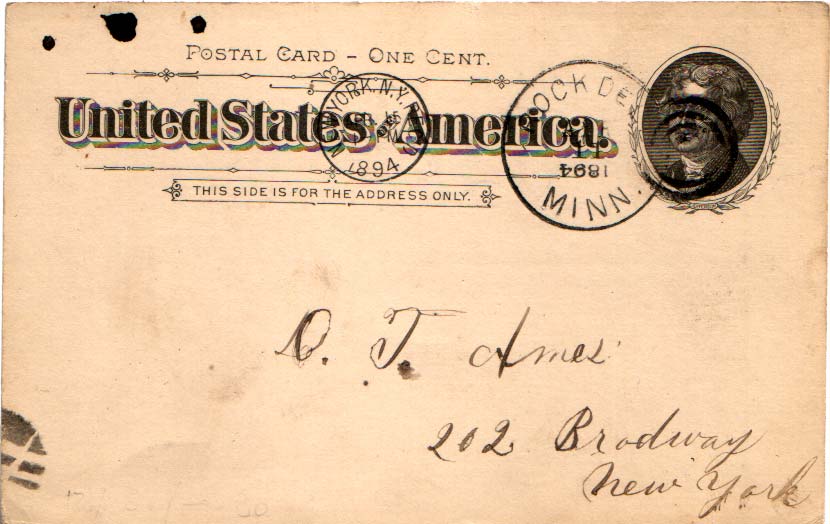 POSTAL CARD – ONE CENT.
United States America.
THIS SIDE IS FOR THE ADDRESS ONLY.
1894
1894
MINN.
D. T. Ames
202 Brodway
New York